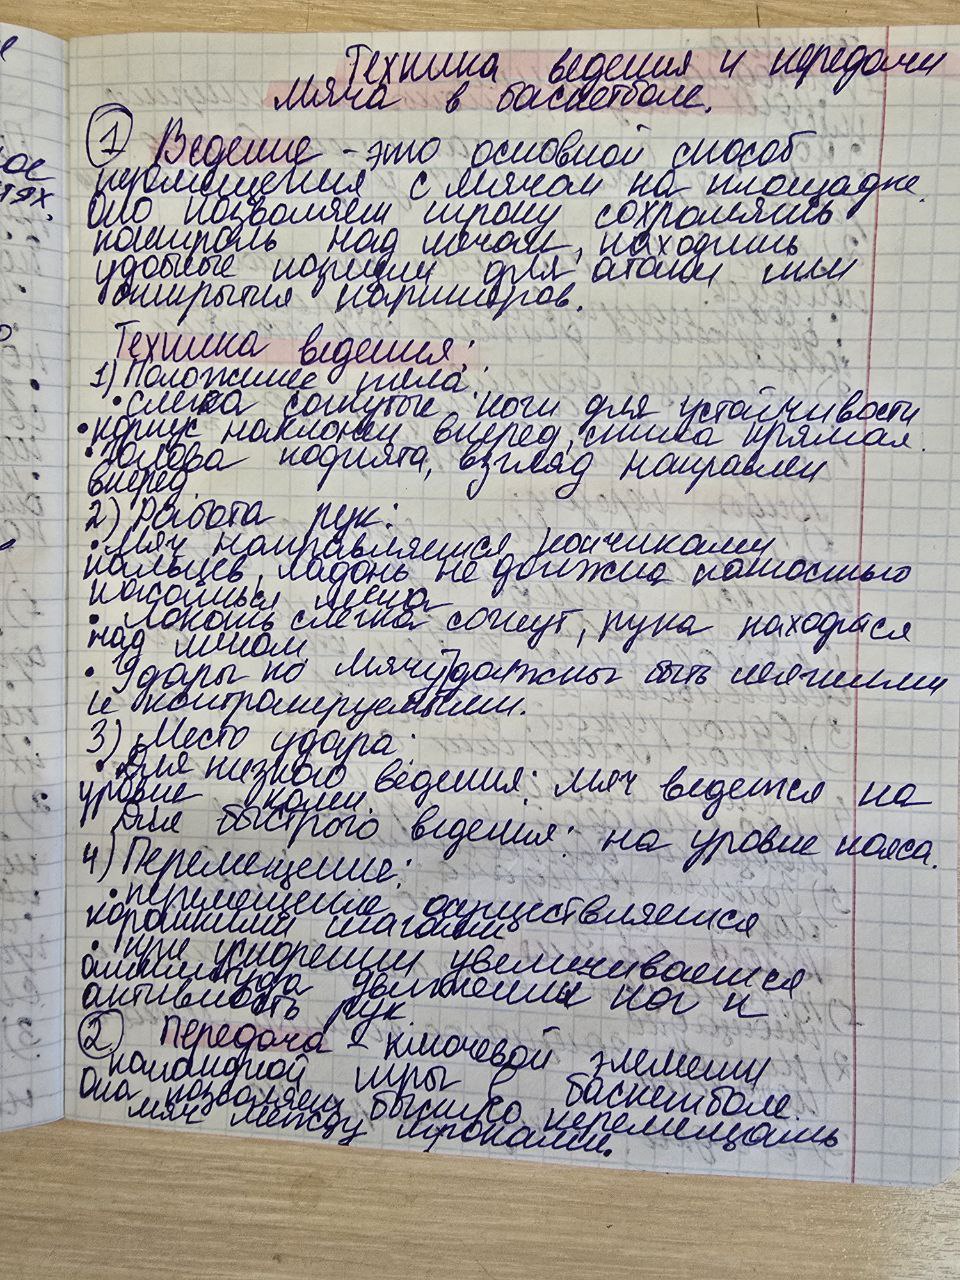 Техника ведения и передачи
мяча в баскетболе.
① Ведение - это основной способ
перемещения с мячом на площадке.
Оно позволяет игроку сохранять
контроль над мячом, находить
удобные позиции для атаки или
открытия партнёров.
Техника ведения:
1) Положение тела:
• слегка согнутые ноги для устойчивости
• корпус наклонен вперед, спина прямая.
• голова поднята, взгляд направлен
вперед.
2) Работа рук:
• Мяч направляется кончиками
пальцев, ладонь не должна полностью
касаться мяча
• локоть слегка согнут, рука находится
над мячом
• Удары по мячу должны быть мягкими
и контролируемыми.
3) Место удара:
• Для низкого ведения: мяч ведется на
уровне колен.
Для быстрого ведения: на уровне пояса.
4) Перемещение:
• перемещение осуществляется
короткими шагами
• при ускорении увеличивается
амплитуда движения ног и
активность рук
② Передача - ключевой элемент
командной игры в баскетболе.
Она позволяет быстро перемещать
мяч между игроками.
ое
тях.